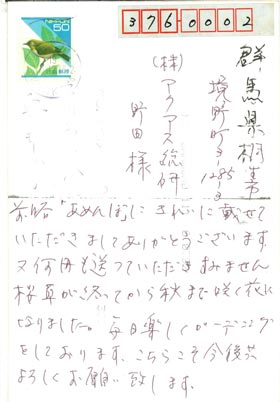 NIPPON
50
日本郵便
376-0002
群馬県桐生市
境野町3-1285-3
(株)アクアス総研
野田 様
前略 あめんぼに きれいに載せて
いただきましてありがとうございます
又何冊も送っていただきすみません
桜草が終ってから秋まで咲く花に
なりました。毎日楽しくガーデニング
をしております。こちらこそ今後共
よろしくお願い致します。